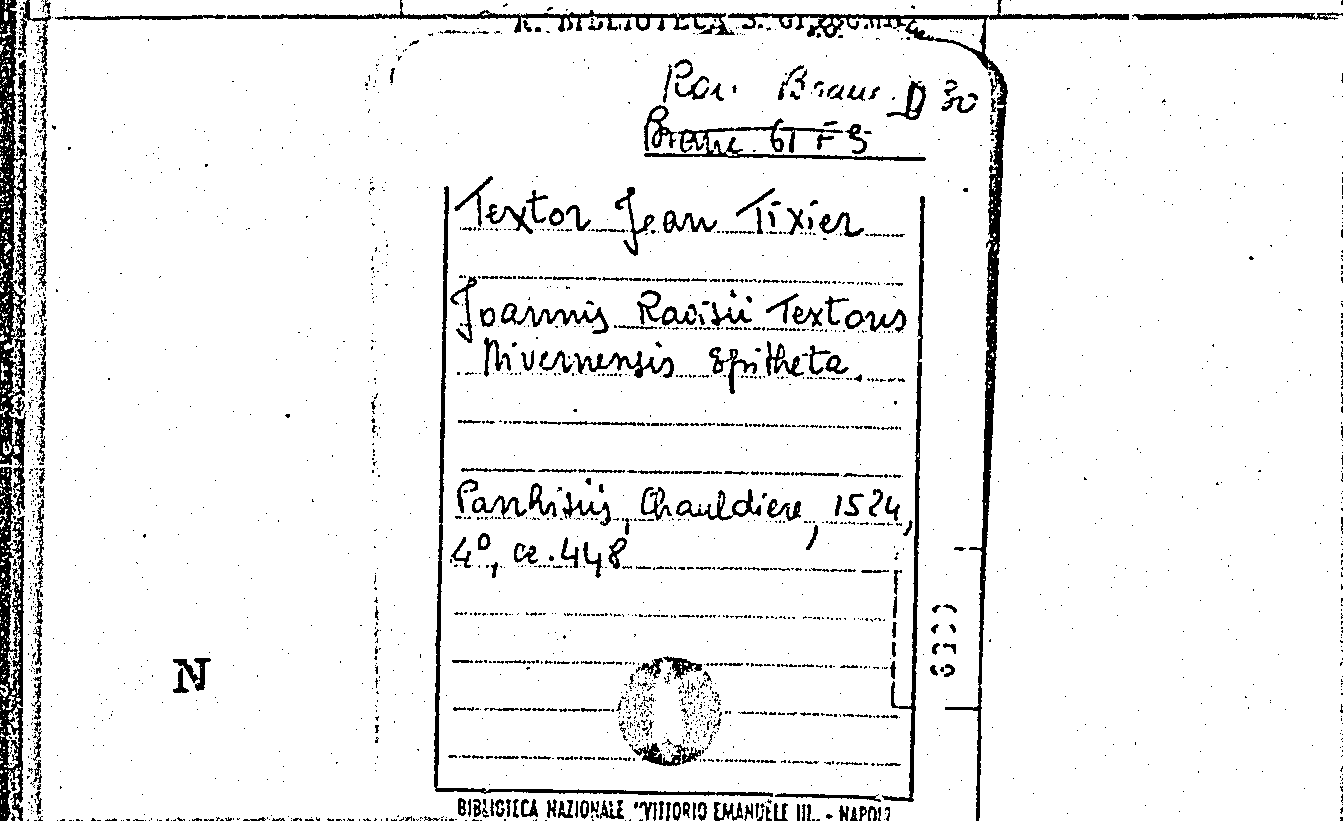 R. BIBLIOTECA S. GIACOMO
Rar. Branc. D 30
Branc. 61 F 5
Textor Jean Tixier
Joannis Ravisii Textoris
Nivernensis Epitheta.
Parrhisiis, Chauldiere, 1524,
4º, cc. 448
N
BIBLIOTECA NAZIONALE "VITTORIO EMANUELE III„ - NAPOLI